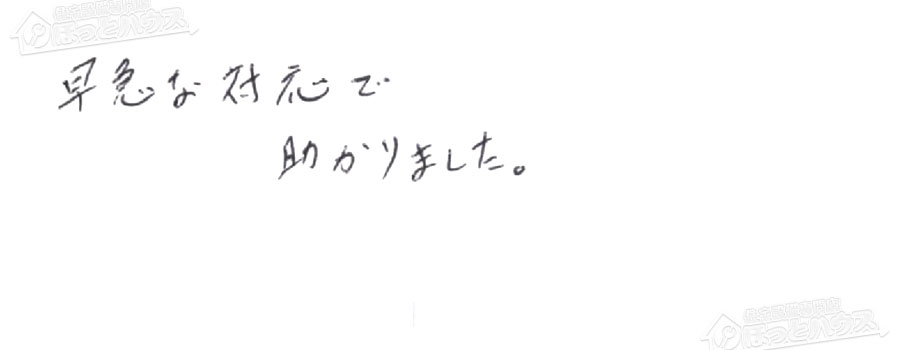 ほっとハウス
早急な対応で
助かりました。
ほっとハウス